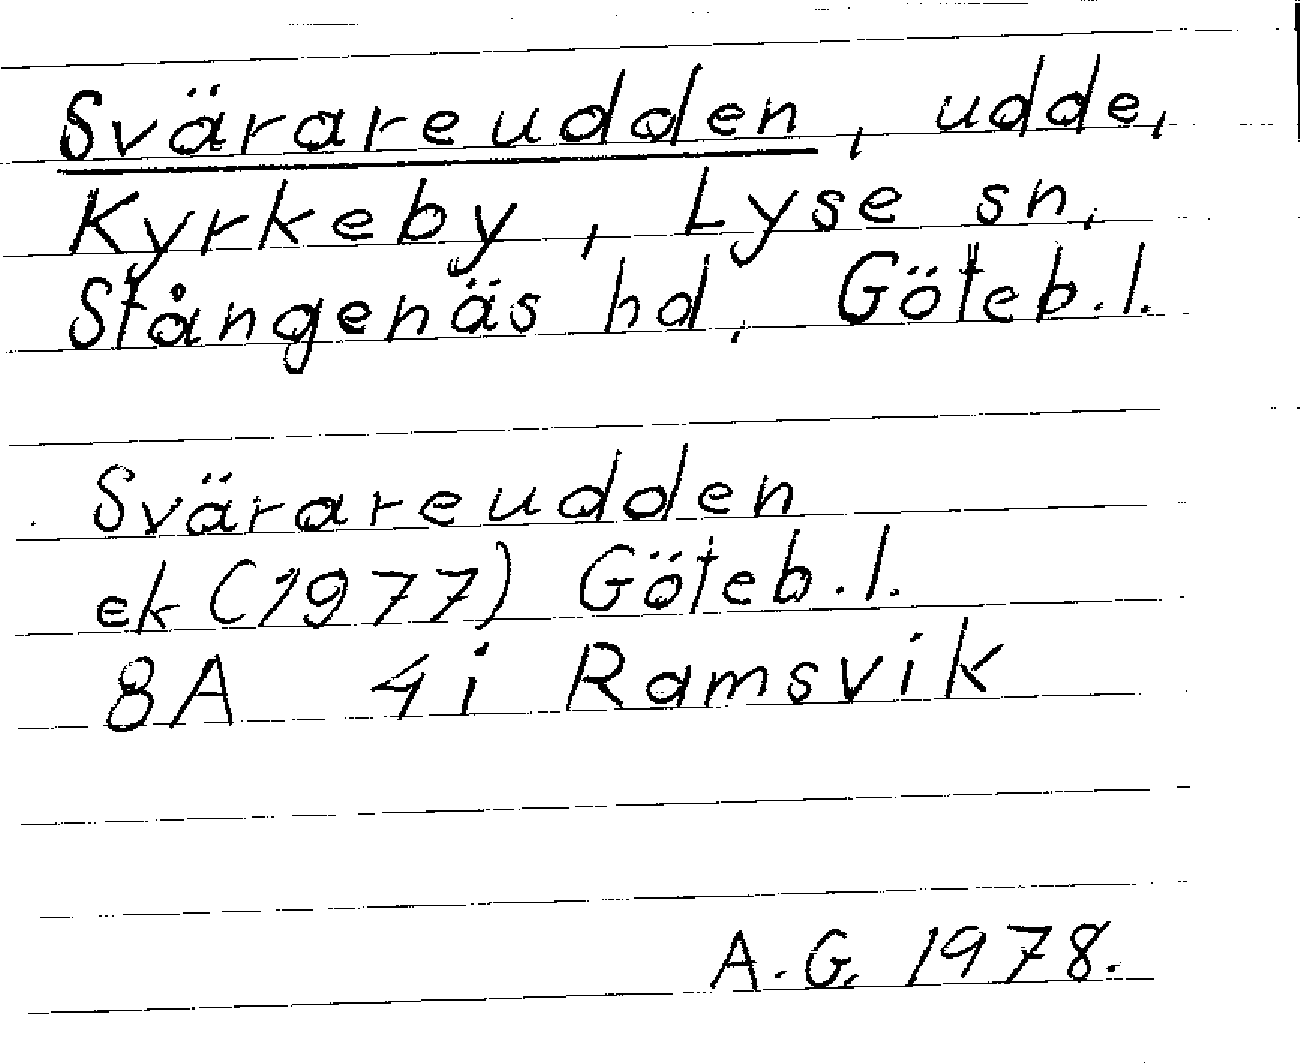 Svärareudden, udde,
Kyrkeby, Lyse sn.
Stångenäs hd, Göteb.l.
Svärareudden
ek (1977) Göteb.l.
8A 4i Ramsvik
A.G. 1978.